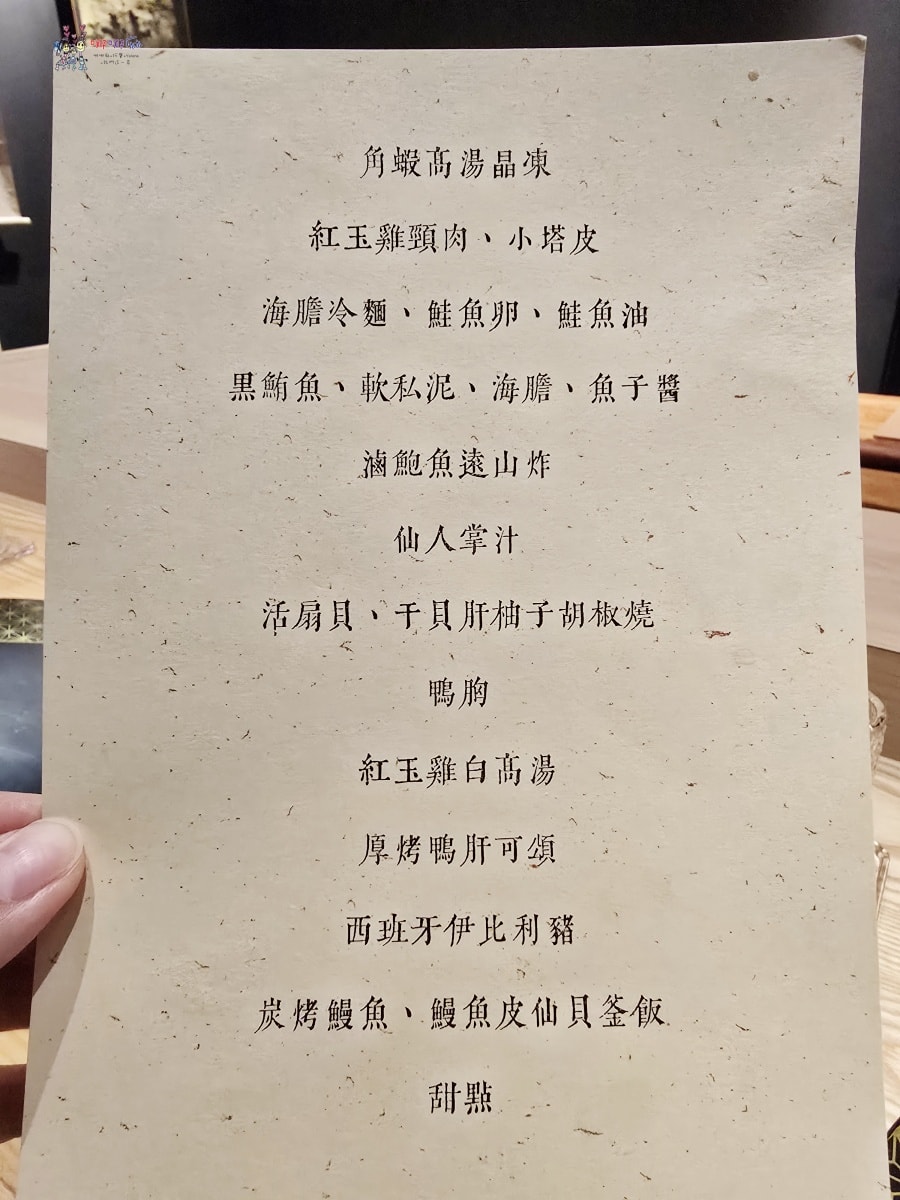 角蝦高湯晶凍
紅玉雞頸肉、小塔皮
海膽冷麵、鮭魚卵、鮭魚油
黑鮪魚、軟私泥、海膽、魚子醬
滷鮑魚遠山炸
仙人掌汁
活扇貝、干貝肝柚子胡椒燒
鴨胸
紅玉雞白高湯
厚烤鴨肝可頌
西班牙伊比利豬
炭烤鰻魚、鰻魚皮仙貝釜飯
甜點